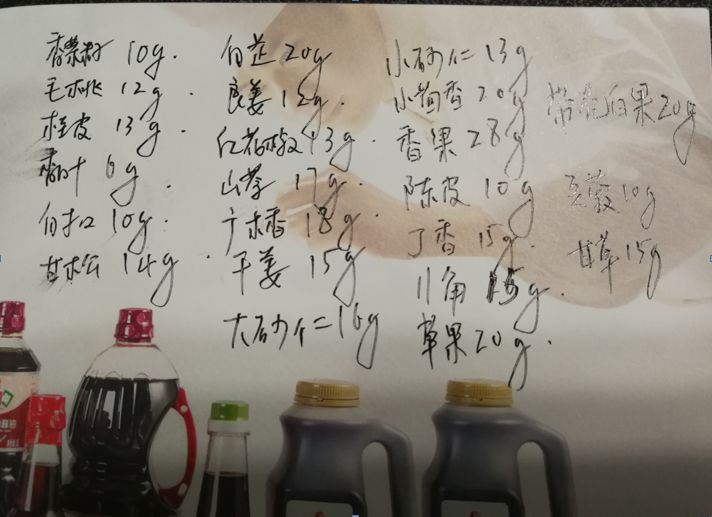 香菜籽 10g.
毛桃 12g.
桂皮 13g.
香叶 6g.
白扣 10g.
甘松 14g.
白芷 20g
良姜 12g.
红花椒 13g.
山萘 17g.
广木香 18g.
干姜 15g
大砂仁 16g
小砂仁 13g
小茴香 20g
香果 28g
陈皮 10g
丁香 15g.
川角 15g.
草果 20g.
带壳白果 20g
豆蔻 10g
甘草 15g